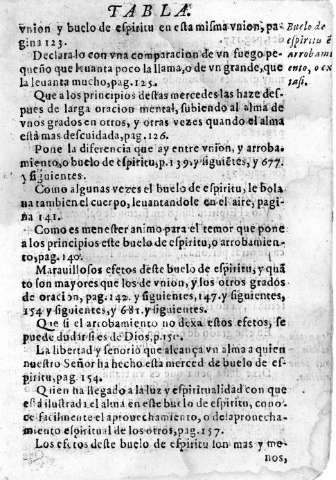 TABLA.
vnion y buelo de espiritu en esta misma vnion, pa
gina 123.
Buelo de
espiritu ẽ
arrobami
ento, o ex
tasi.
Declaralo con vna comparacion de vn fuego pe-
queño que leuanta poco la llama, o de vn grande, que
la leuanta mucho, pag. 125.
Que a los principios destas mercedes las haze des-
pues de larga oracion mental, subiendo al alma de
vnos grados en otros, y otras vezes quando el alma
està mas descuidada, pag. 126.
Pone la diferencia que ay entre vnion, y arroba-
miento, o buelo de espiritu, p. 139. y siguiẽtes, y 677.
y siguientes.
Como algunas vezes el buelo de espiritu, le bola
na tambien el cuerpo, leuantandole en el aire, pagi
na 141.
Como es menester animo para el temor que pone
a los principios este buelo de espiritu, o arrobamien-
to, pag. 140.
Marauillosos efetos deste buelo de espiritu, y quã
to son mayores que los de vnion, y los otros grados
de oracion, pag. 142. y siguientes, 147. y siguientes,
154 y siguientes, y 681. y siguientes.
Que si el arrobamiento no dexa estos efetos, se
puede dudar si es de Dios, p.
La libertad y señorio que alcança vn alma a quien
nuestro Señor ha hecho esta merced de buelo de es-
piritu, pag. 154.
Quien ha llegado a la luz y espiritualidad con que
està ilustrada el alma en este buelo de espiritu, cono-
ce facilmente el aprouechamiento, o desaprouecha-
miento espiritual de los otros, pag. 157.
Los efetos deste buelo de espiritu son mas y me-
nos,